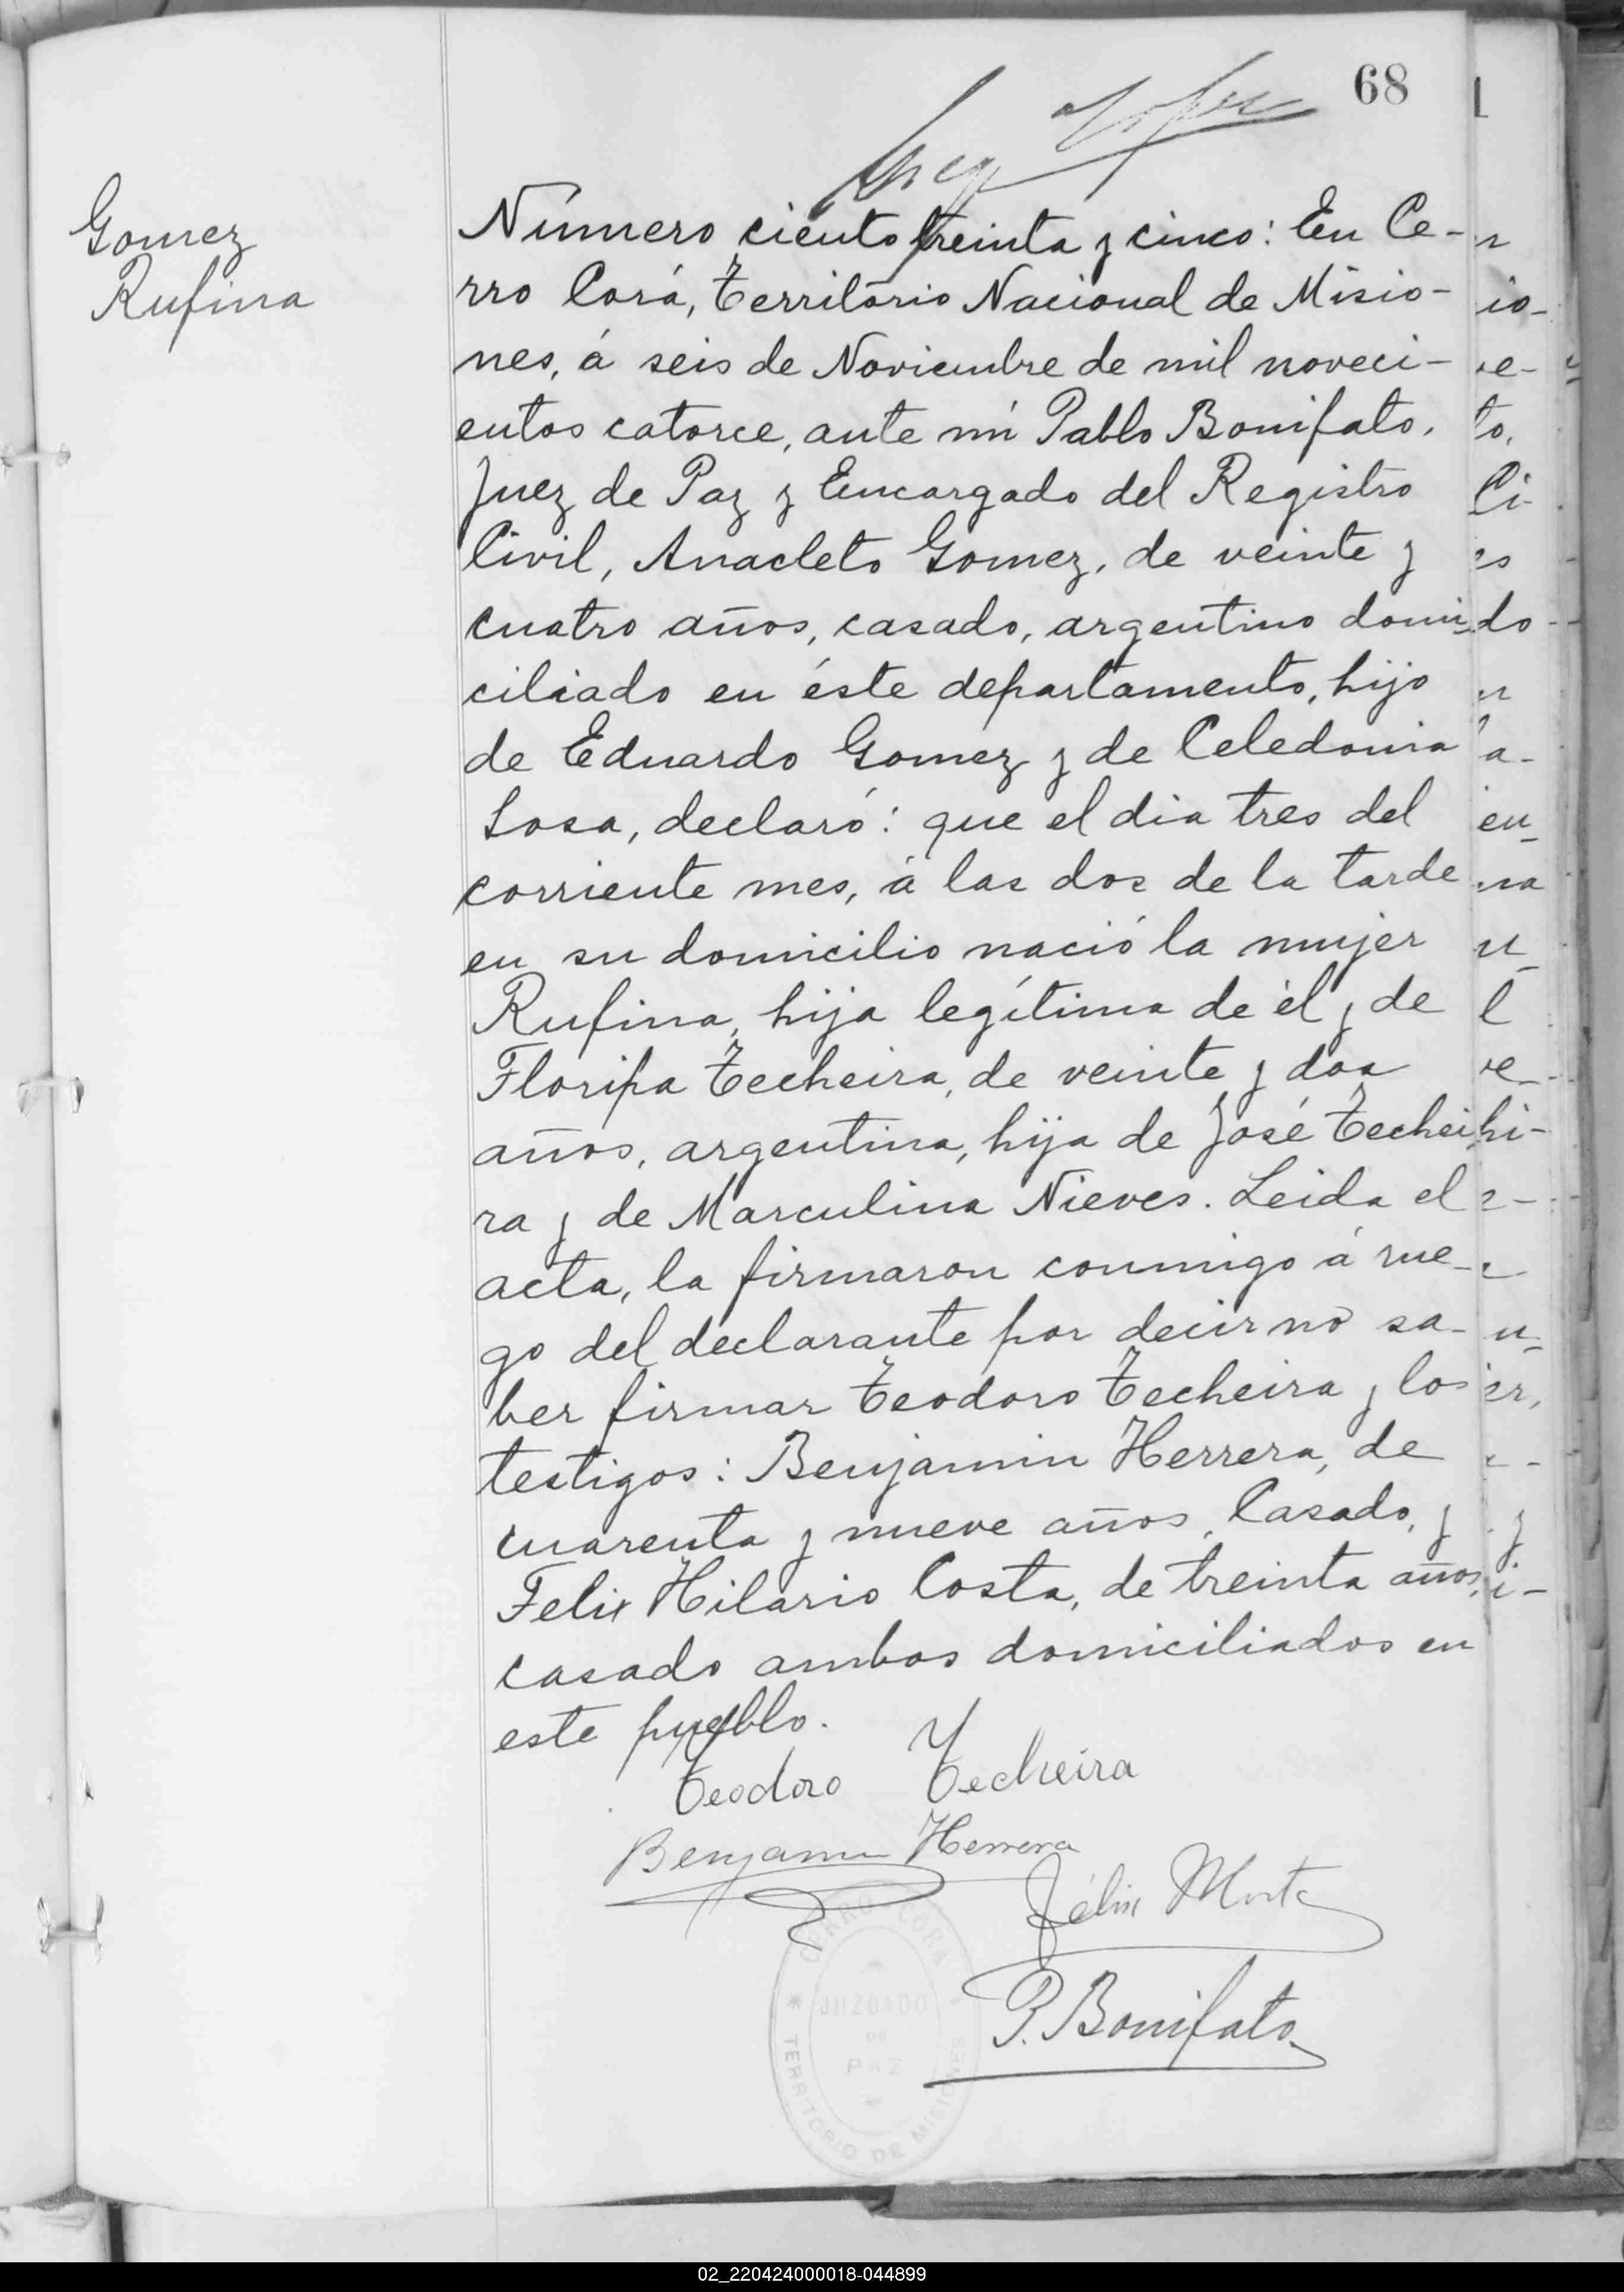 68
Gomez
Rufina
Número ciento treinta y cinco: En Ce-
rro Corá, Territorio Nacional de Misio-
nes, á seis de Noviembre de mil noveci-
entos catorce, ante mí Pablo Bonifato,
Juez de Paz y Encargado del Registro
Civil, Anacleto Gomez, de veinte y
cuatro años, casado, argentino domi-
ciliado en éste departamento, hijo
de Eduardo Gomez y de Celedonia
Sosa, declaró: que el dia tres del
corriente mes, á las dos de la tarde
en su domicilio nació la mujer
Rufina, hija legítima de él y de
Floripa Techeira, de veinte y dos
años, argentina, hija de José Techei
ra y de Marculina Nieves. Leida el
acta, la firmaron conmigo á rue-
go del declarante por decir no sa-
ber firmar Teodoro Techeira y los
testigos: Benjamin Herrera, de
cuarenta y nueve años, Casado, y
Felix Hilario Costa, de treinta años,
casado ambos domiciliados en
este pueblo.
Teodoro Techeira
Benjamin Herrera
Félix
P. Bonifato
CERRO CORA
JUZGADO
DE
PAZ
TERRITORIO DE MISIONES
02_220424000018-044899